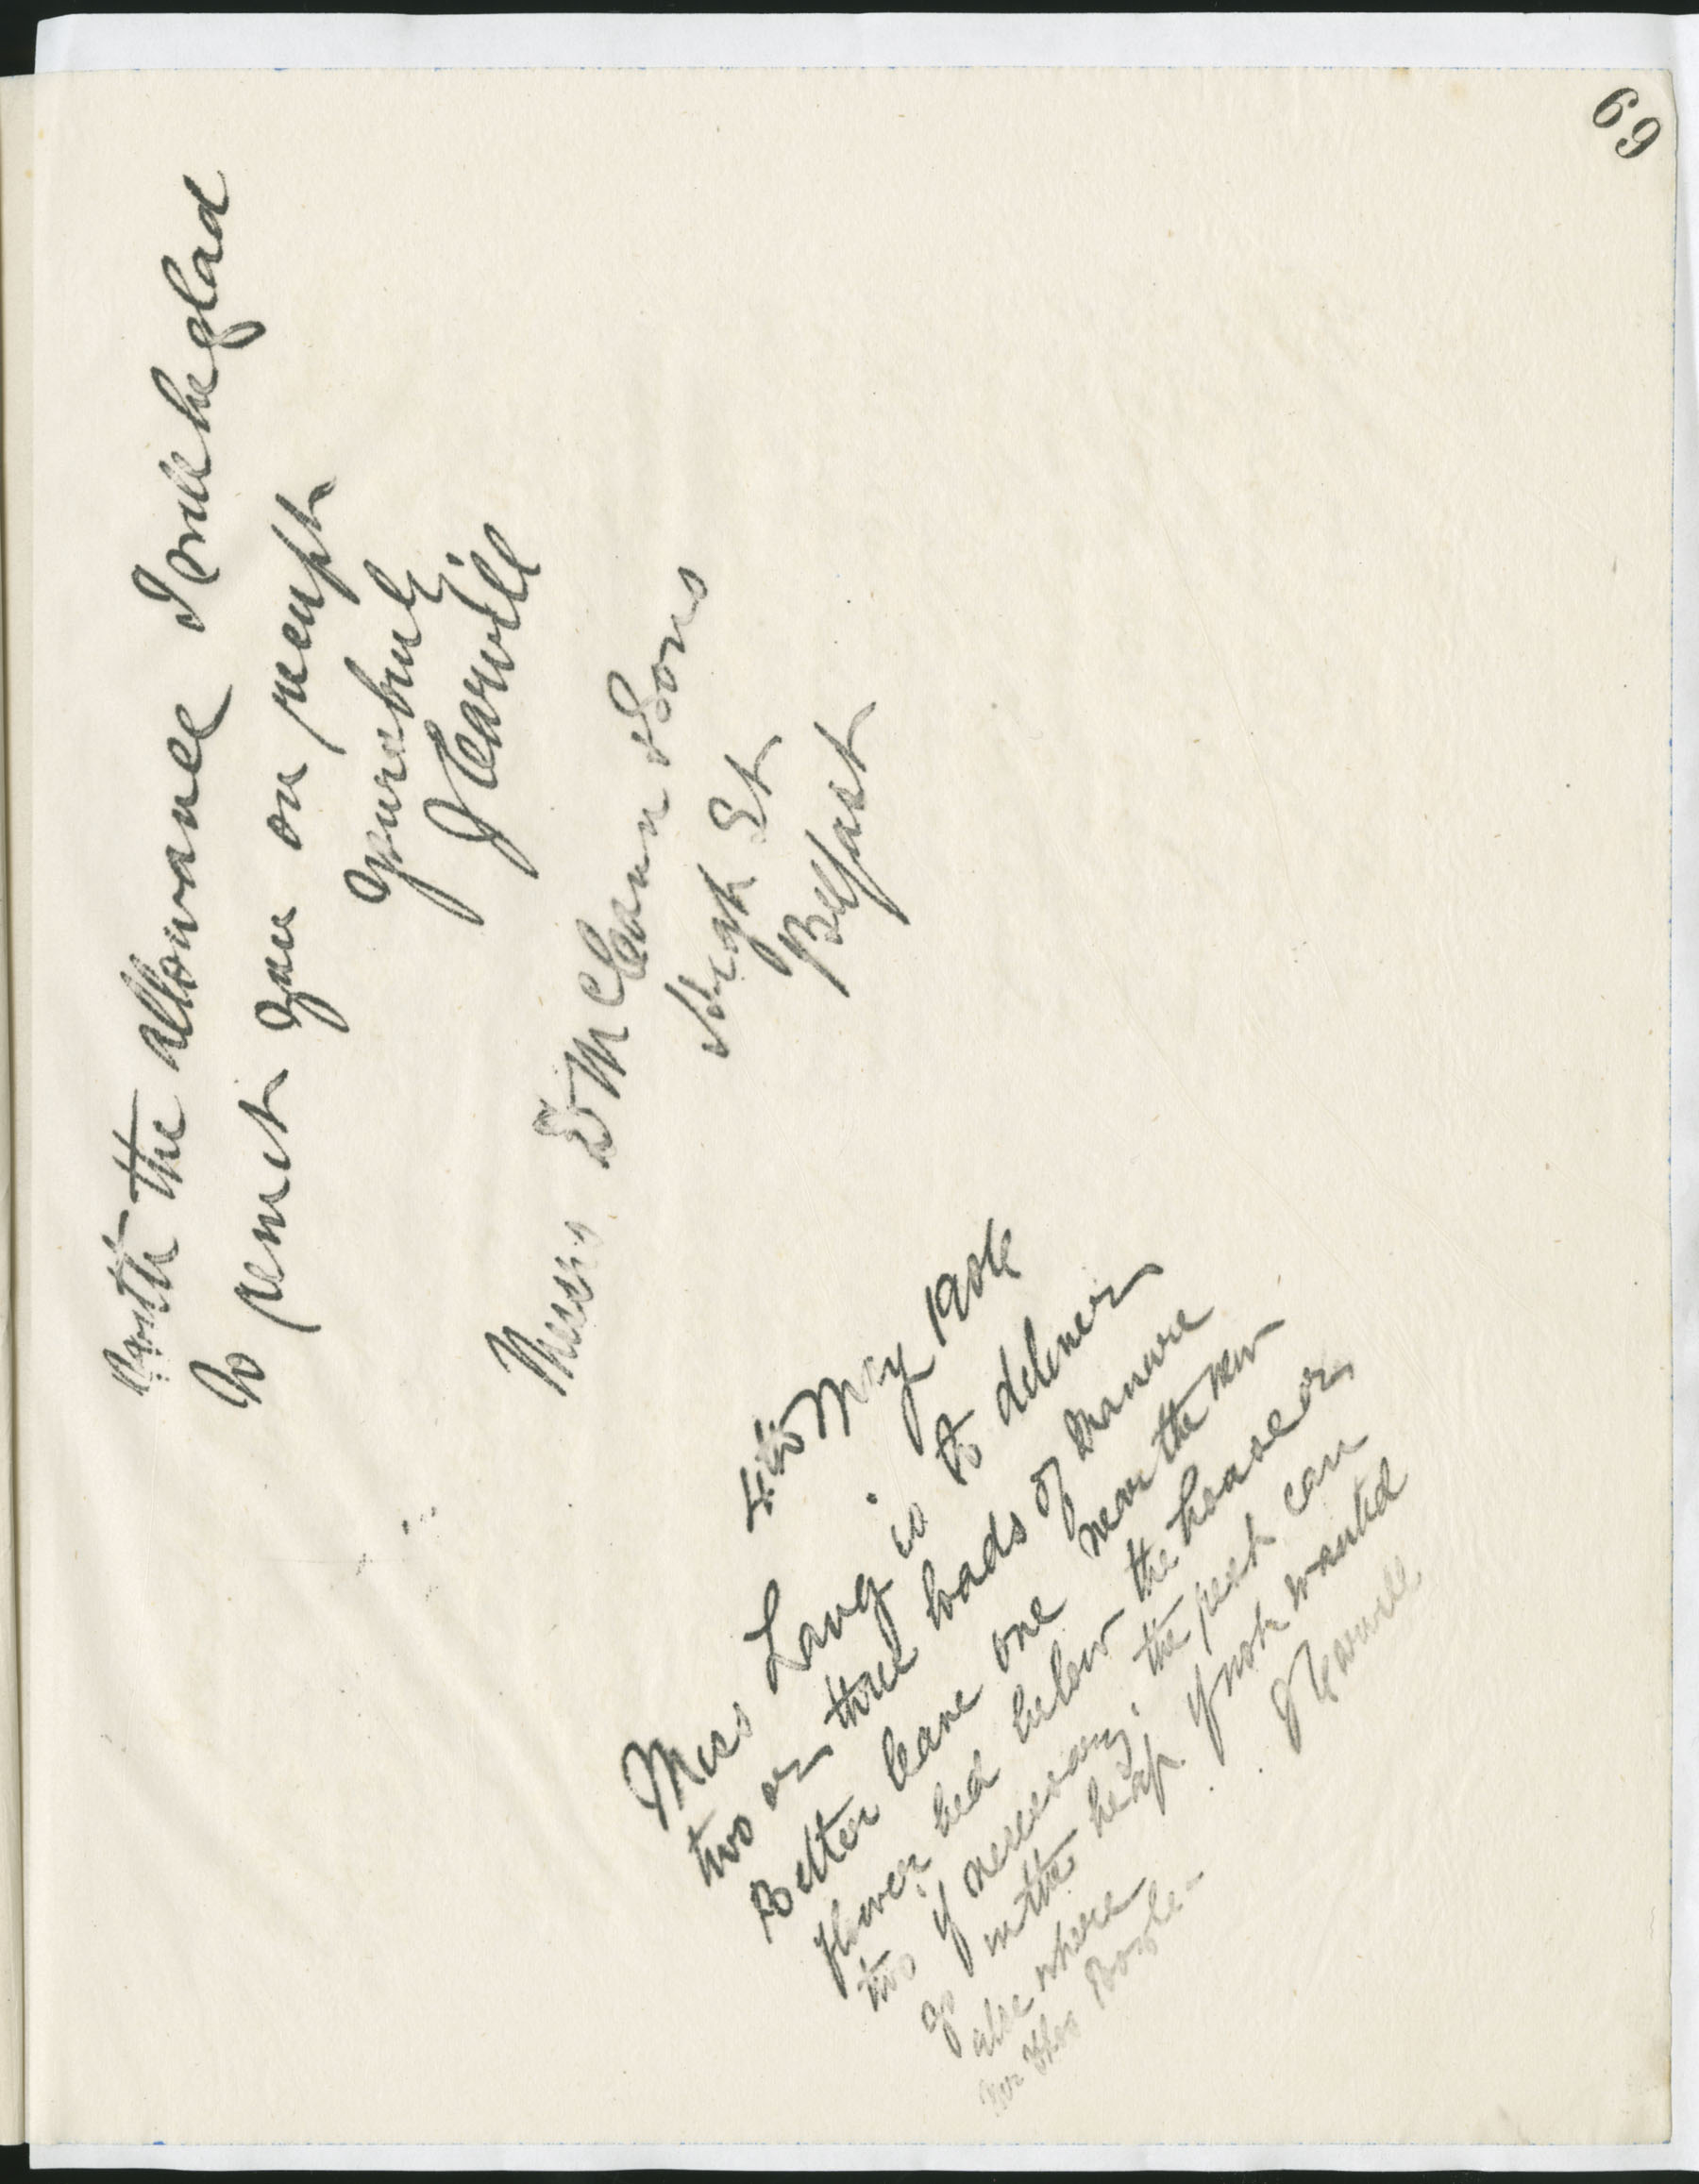 69
with the allowance I will be glad
to remit you on receipt
yours truly
J Carvill
Messrs D McCann & Sons
High St
Belfast
4th May
Miss Lang is to deliver
two or three loads of manure
Better leave one near the new
flower bed below the house or
two if necessary. the rest can
go in the heap if not wanted
else where
J Carvill